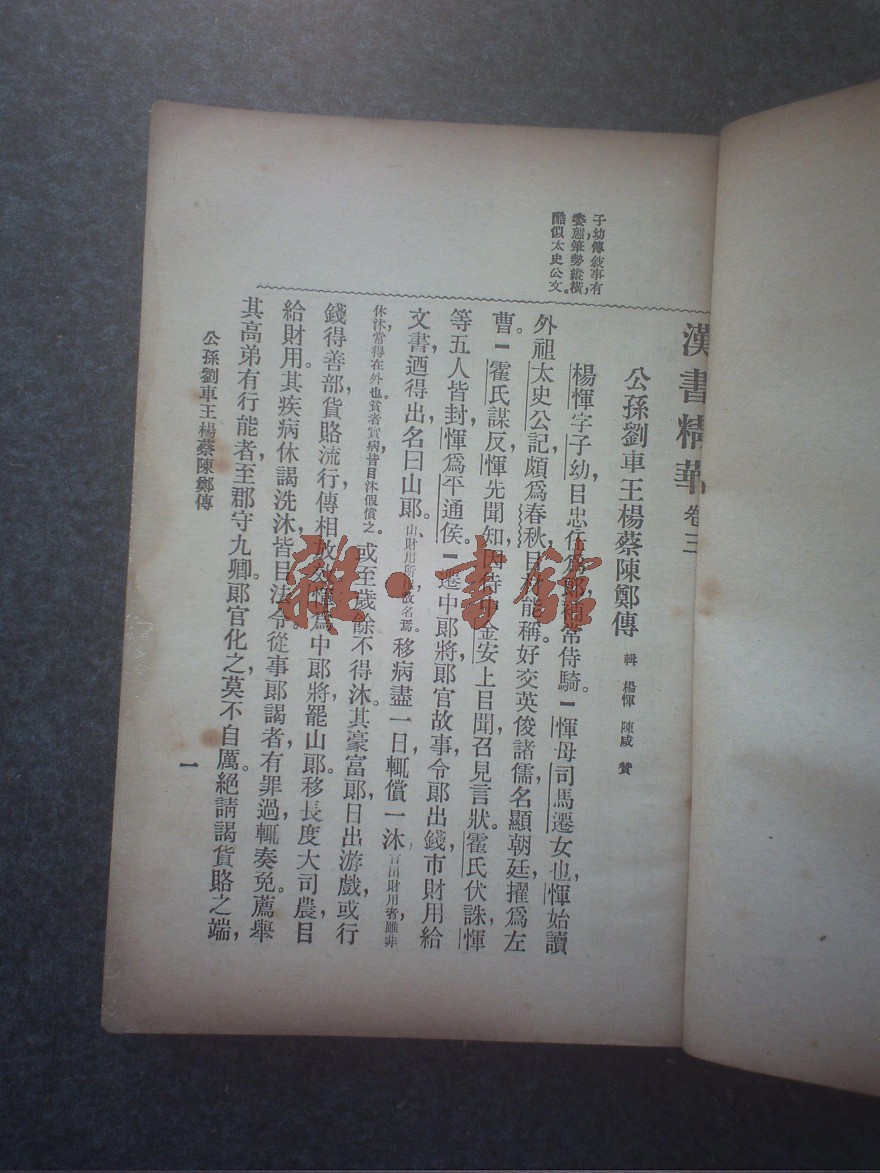 漢書精華 卷三
公孫劉車王楊蔡陳鄭傳 輯 楊惲 陳咸 贊
子幼傳敍事有
姿態筆勢縱橫,
酷似太史公文。
楊惲字子幼,㠯忠任爲郞,補常侍騎。惲母司馬遷女也,惲始讀
外祖太史公記,頗爲春秋,㠯材能稱,好交英俊諸儒,名顯朝廷,擢爲左
曹。霍氏謀反,惲先聞知,因侍中金安上㠯聞,召見言狀。霍氏伏誅,惲
等五人皆封,惲爲平通侯。遷中郞將,郞官故事,令郞出錢市財用給
文書,迺得出,名曰山郞。山,財用所出,故名焉。移病盡一日,輒償一沐,官出財用者,雖非
休沐,常得在外也。貧者實病,皆㠯沐假償之。或至歲餘不得沐。其豪富郞日出游戲,或行
錢得善部,貨賂流行,傳相放效。惲爲中郞將,罷山郞,移長度大司農,㠯
給財用。其疾病休謁洗沐,皆㠯法令從事。郞謁者有罪過,輒奏免。薦舉
其高弟有行能者,至郡守九卿。郞官化之,莫不自厲。絕請謁貨賂之端,
公孫劉車王楊蔡陳鄭傳
一
雜·書館